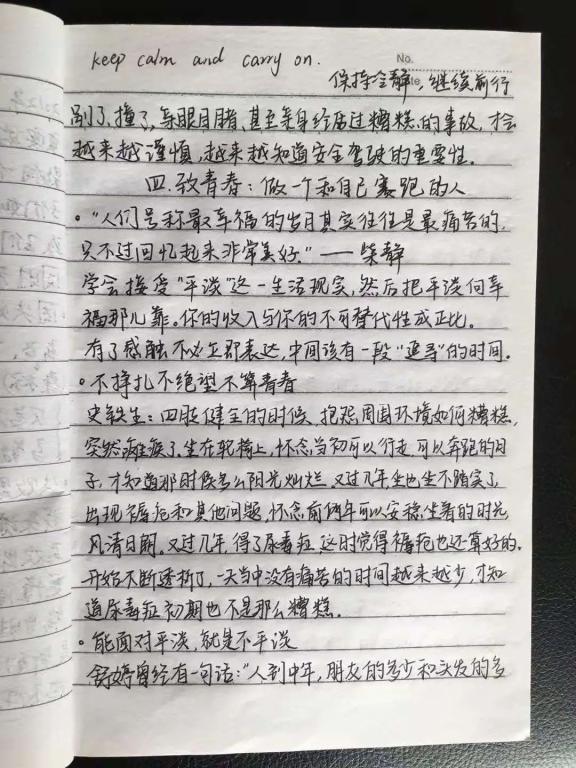 keep calm and carry on.
No.
保持冷静，继续前行
剐了，撞了，等眼目睹、甚至亲身经历过糟糕的事故，才会
越来越谨慎，越来越知道安全驾驶的重要性。
四.致青春：做一个和自己赛跑的人
·“人们号称最幸福的岁月其实往往是最痛苦的，
只不过回忆起来非常美好。”——柴静
学会接受“平淡”这一生活现实，然后把平淡向幸
福那儿靠。你的收入与你的不可替代性成正比。
有了感触不必立即表达，中间该有一段“追寻”的时间。
·不挣扎不绝望不算青春
史铁生：四肢健全的时候，抱怨周围环境如何糟糕，
突然瘫痪了，坐在轮椅上，怀念当初可以行走，可以奔跑的日
子，才知道那时候多么阳光灿烂。又过几年坐也坐不踏实了，
出现褥疮和其他问题，怀念前两年可以安稳坐着的时光，
风清日朗。又过几年，得了尿毒症，这时觉得褥疮也还算好的。
开始不断透析了，一天当中没有痛苦的时间越来越少，才知
道尿毒症初期也不是那么糟糕。
·能面对平淡，就是不平淡
舒婷曾经有一句话：“人到中年，朋友的多少和头发的多